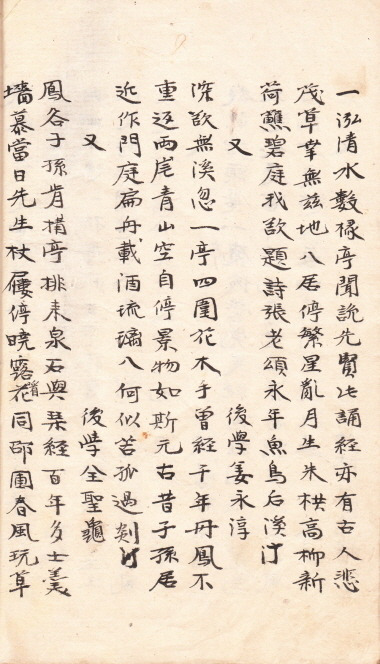 一泓清水數椽亭聞說先賢此誦經亦有古人悲
茂草幸無兹地八居停繁星亂月生朱栱高柳新
荷蘸碧庭我欲題詩張老頌永年魚鳥后溪汀
後學姜永淳
又
深欲無溪忽一亭四圍花木手曾經千年丹鳳不
重返兩崖青山空自停景物如斯元古昔子孫居
近作門庭扁舟載酒琉璃八何似苦孤過剡汀
後學全聖龜
又
鳳谷子孫肯構亭排来泉石與琹經百年多士羹
墻慕當日先生杖屨停曉露花同邵圃春風玩草